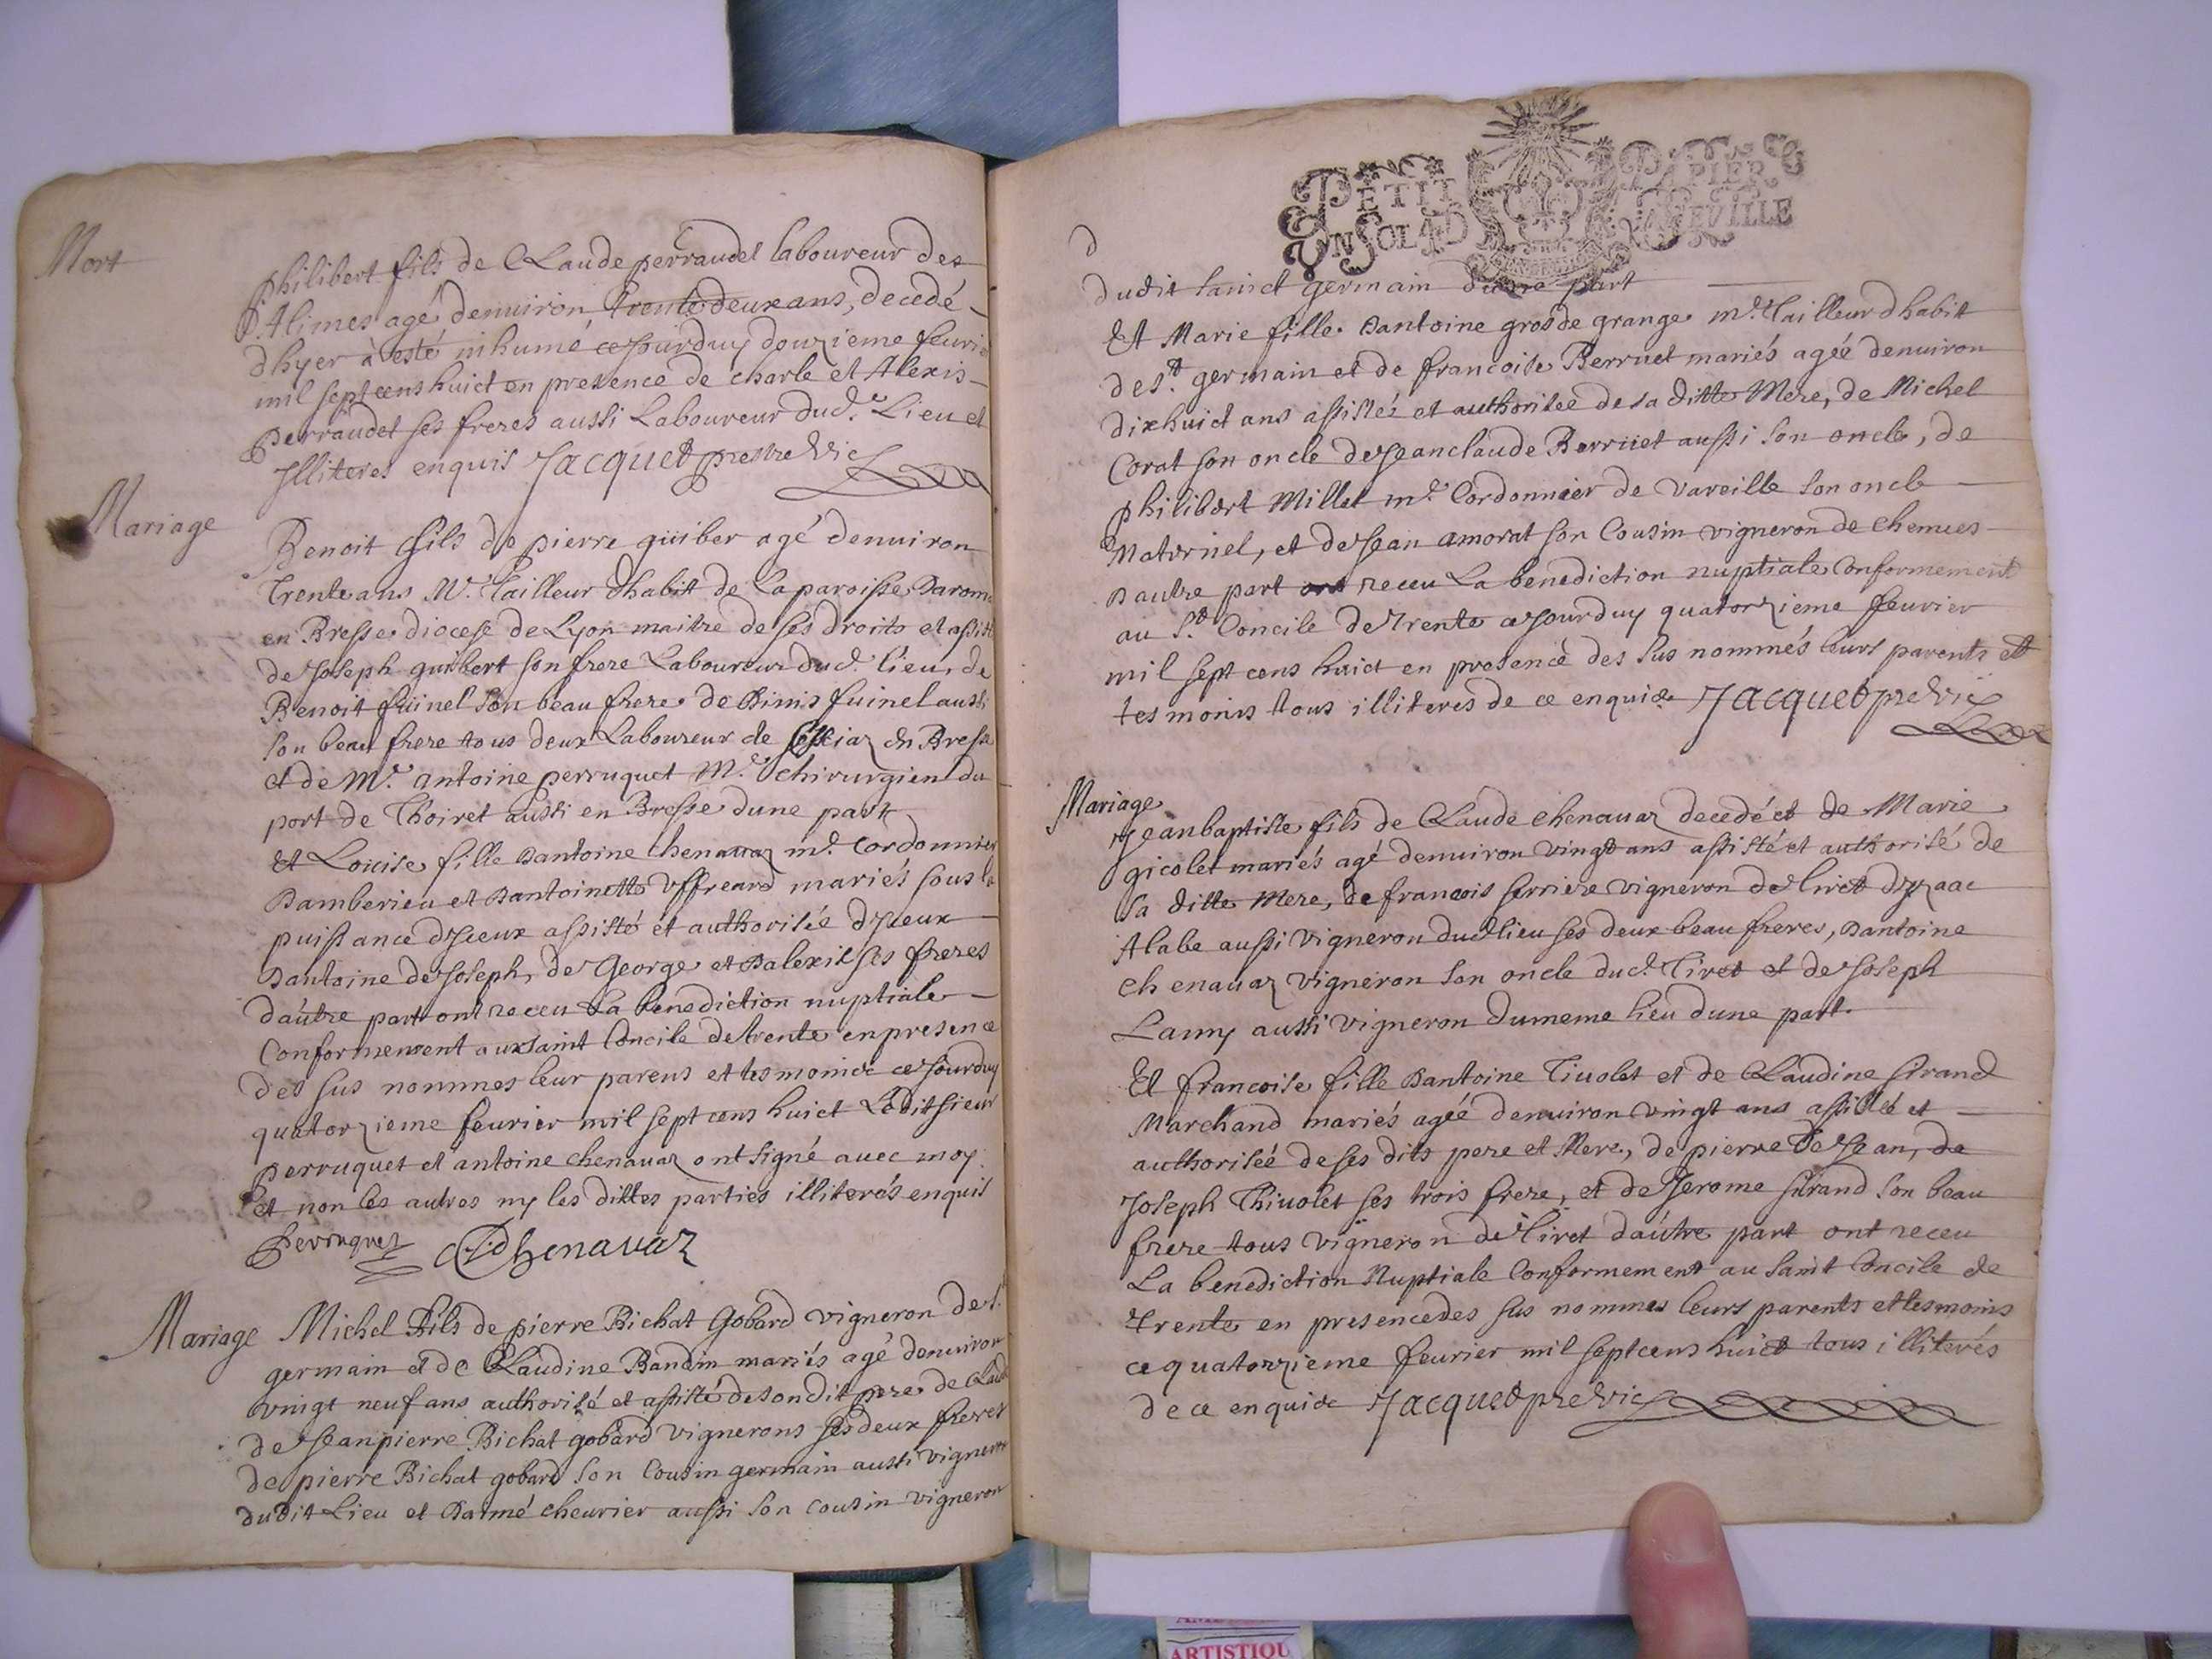 Mort
philibert fils de Claude perraudet laboureur des
Alimes agé denuiron trente deux ans, decedé
dhyer à esté inhumé cejourduy douzieme feurie
mil sept cens huict en presence de charle et Alexis
perraudet ses freres aussi Laboureur dud. Lieu et
Jlliteres enquis Jacquet prestre Vic
Mariage
Benoit fils de pierre guiber agé denuiron
trente ans Mr. Tailleur dhabit de La paroisse
en Bresse diocese de Lyon maitre de ses droits et assist
de Joseph guibert son frere Laboureur dud. lieu, de
Benoit fuinel son beau frere de Dinis fuinel aussi
son beau frere tous deux Laboureur de en Bresse
et de Mr. antoine perruquet Mr. chirurgien du
port de Thoiret aussi en Bresse dune part
et Louise fille Dantoine chenauaz md. Cordonnier
Damberieu et Dantoinette mariés sous la
puissance dJceux assisté et authorisée dJceux
Dantoine de Joseph, de George et Dalexis ses freres
dautre part ont receu La benediction nuptiale
Conformement aux saint Concile de trente en presence
des sus nommes leur parens et tesmoins cejourduy
quatorzieme feurier mil sept cens huict Ledit sieur
perruquet et antoine chenauaz ont signé auec moy
et non les autres ny les dittes parties illiterés enquis
Perruquet Chenauaz
Mariage Michel fils de pierre Bichat Gobard vigneron de S.
germain et de Claudine Bandin mariés agé denuiron
vingt neuf ans authorisé et assisté de son dit pere de Claude
de Jean pierre Bichat gobard vignerons ses deux freres
de pierre Bichat gobard son Cousin germain aussi vigneron
dudit Lieu et Daimé cheurier aussi son cousin vigneron
PETIT PAPIER
UN SOL 4 D
dudit sainct germain dune part
Et Marie fille Dantoine gros de grange md. Tailleur dhabit
de St. germain et de francoise Berruet mariés agée denuiron
dixhuict ans assistée et authorisée de sa ditte Mere, de Michel
Corat son oncle de Jean claude Berruet aussi son oncle, de
philibert Millet md. Cordonnier de Vareille son oncle
Maternel, et de Jean amorat son Cousin vigneron de chemues
Dautre part ont receu La benediction nuptiale Conformement
au St. Concile de Trente cejourduy quatorzieme feurier
mil sept cens huict en presence des sus nommés leurs parents et
tesmoins tous illiteres de ce enquis Jacquet pre Vic
Mariage
Jean baptiste fils de Claude chenauaz decedé et de Marie
gicolet mariés agé denuiron vingt ans assisté et authorisé de
sa ditte Mere, de francois serriere vigneron de tiret dJzaac
Alabe aussi vigneron dud lieu ses deux beau freres, Dantoine
chenauaz vigneron son oncle dud. Tiret et de Joseph
Lamy aussi vigneron du meme lieu dune part
Et francoise fille Dantoine Tiuolet et de Claudine sirand
Marchand mariés agée denuiron vingt ans assistée et
authorisée de ses dits pere et Mere, de pierre de Jean, de
Joseph Thiuolet ses trois frere, et de Jerome sirand son beau
frere tous vigneron de tiret dautre part ont receu
La benediction Nuptiale Conformement au saint Concile de
Trente en presence des sus nommes leurs parents et tesmoins
ce quatorzieme feurier mil sept cens huict tous illiterés
de ce enquis Jacquet pre Vic
ARTISTIQU